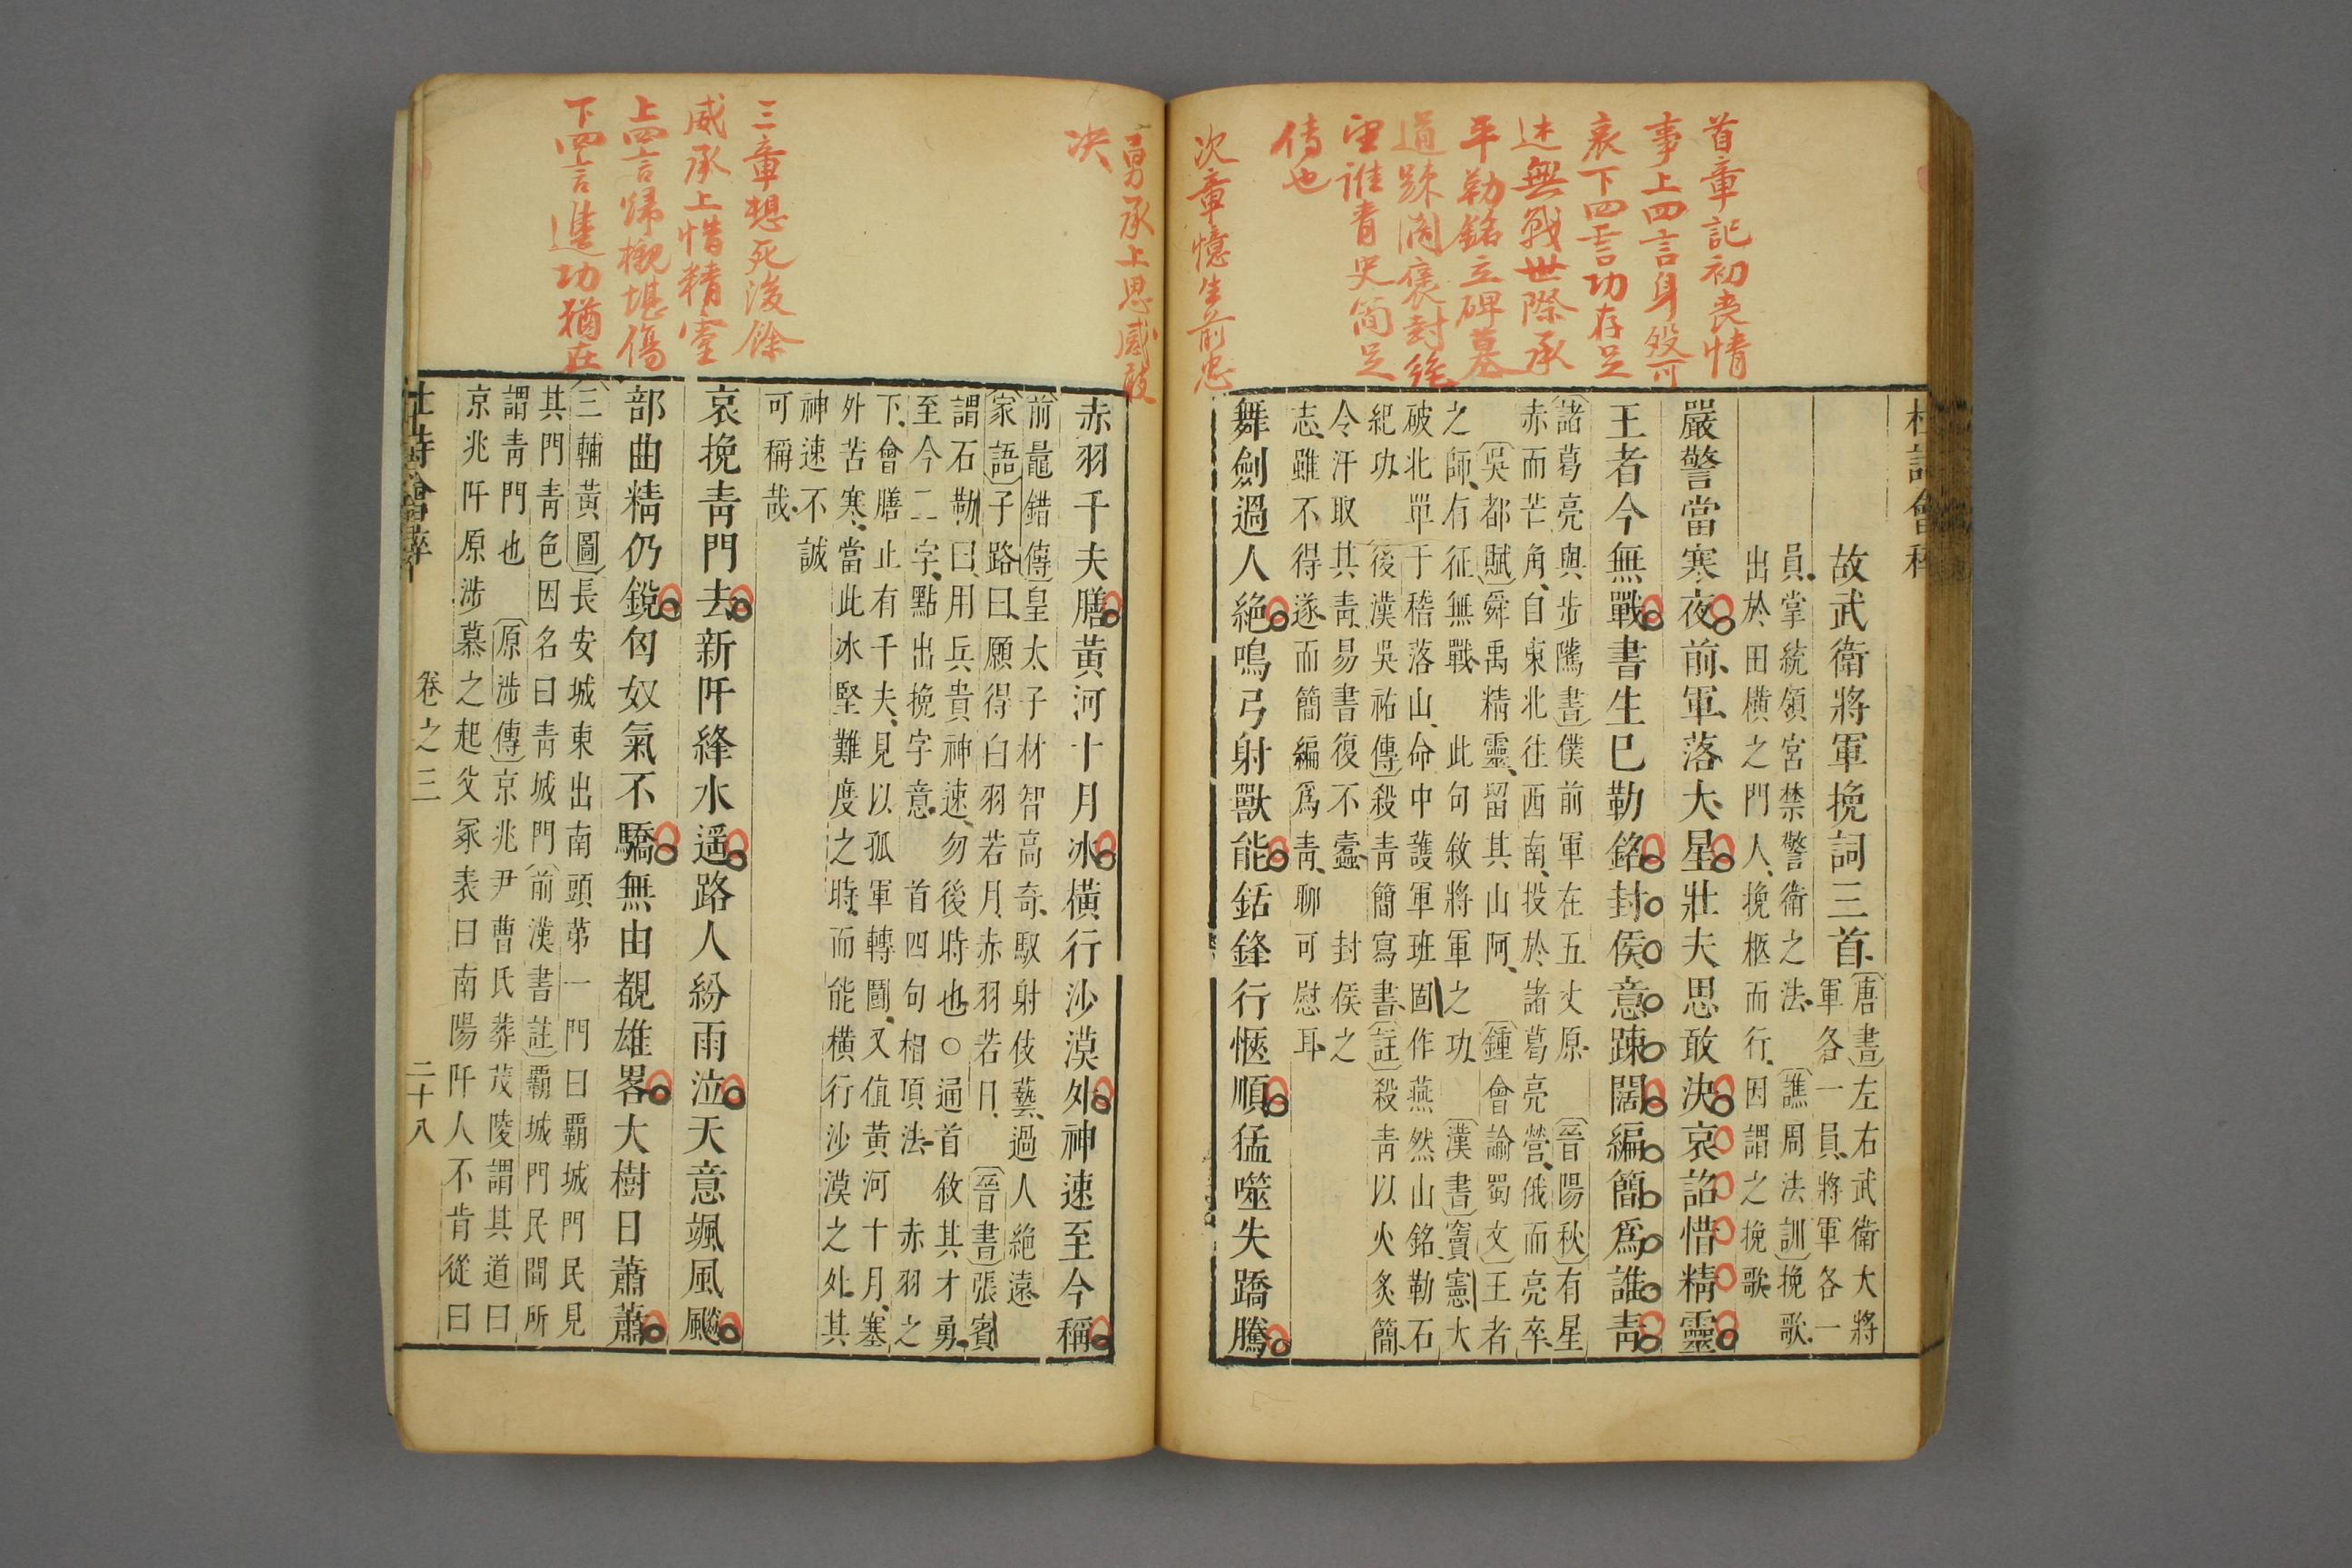 首章記初喪情
事上四言身歿可
哀下四言功存足
述無戰世際承
平勒銘立碑墓
道踈濶褒封絶
望誰青史簡足
傳也
次章憶生前忠
故武衛將軍挽詞三首
唐書左右武衛大將
軍各一員將軍各一
員掌統領宮禁警衛之法譙周法訓挽歌
出於田橫之門人挽柩而行因謂之挽歌
嚴警當寒夜前軍落大星壯夫思敢決哀詔惜精靈
王者今無戰書生已勒銘封侯意踈闊編簡爲誰青
諸葛亮與步隲書僕前軍在五丈原晉陽秋有星
赤而芒角自東北往西南投於諸葛亮營俄而亮卒
吳都賦舜禹精靈留其山阿鍾會論蜀文王者
之師有征無戰此句敘將軍之功漢書竇憲大
破北單于稽落山命中護軍班固作燕然山銘勒石
紀功後漢吳祐傳殺青簡寫書註殺青以火炙簡
令汗取其青易書復不蠹封侯之
志雖不得遂而簡編爲青聊可慰耳
舞劍過人絶鳴弓射獸能銛鋒行愜順猛噬失蹻騰
勇承上思感敢
决
三章想死後餘
威承上惜精靈
上四言歸櫬堪傷
下四言進功猶在
赤羽千夫膳黃河十月冰橫行沙漠外神速至今稱
前鼂錯傳皇太子材智高奇馭射伎藝過人絶遠
家語子路曰願得白羽若月赤羽若日晉書張賓
謂石勒曰用兵貴神速勿後時也○通首敘其才勇
至今二字點出挽字意首四句相項法赤羽之
下會膳止有千夫見以孤軍轉鬬又值黃河十月塞
外苦寒當此冰堅難度之時而能橫行沙漠之外其
神速不誠
可稱哉
哀挽青門去新阡絳水遥路人紛雨泣天意颯風飈
部曲精仍銳匈奴氣不驕無由覩雄畧大樹日蕭蕭
三輔黃圖長安城東出南頭第一門曰覇城門民見
其門青色因名曰青城門前漢書註覇城門民間所
謂青門也原涉傳京兆尹曹氏葬茂陵謂其道曰
京兆阡原涉慕之起父冢表曰南陽阡人不肯從曰
卷之三
二十八